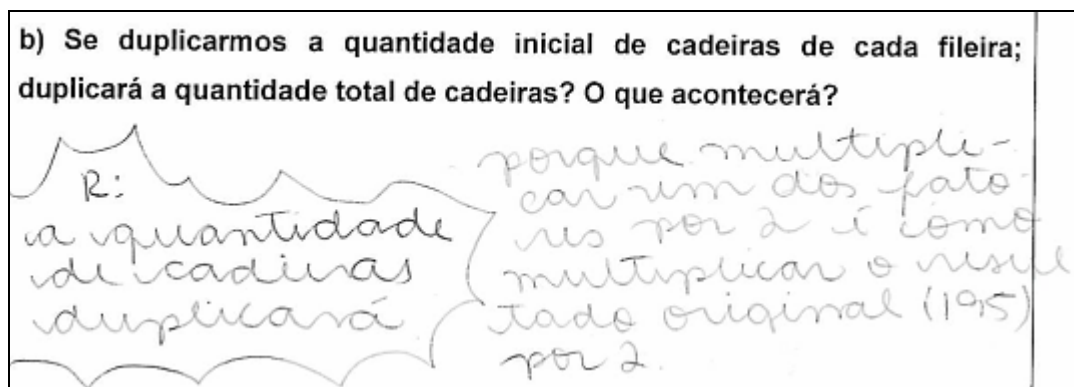 b) Se duplicarmos a quantidade inicial de cadeiras de cada fileira;
duplicará a quantidade total de cadeiras? O que acontecerá?
R:
a quantidade
de cadeiras
duplicará
porque multipli-
car um dos fato
res por 2 é como
multiplicar o resul
tado original (195)
por 2.